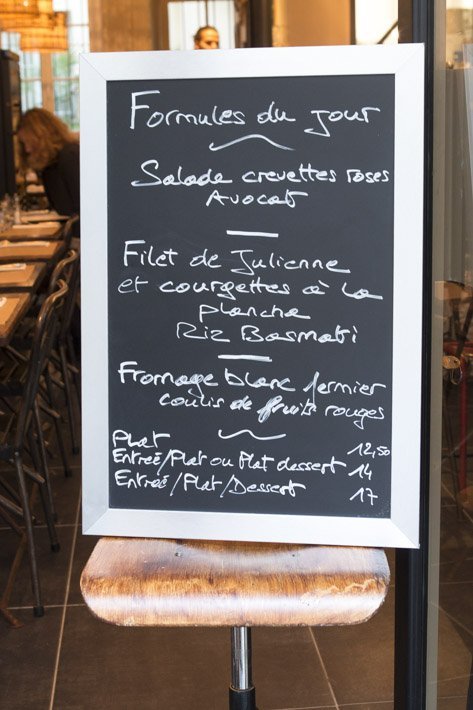 Formules du jour
Salade crevettes roses
Avocat
Filet de Julienne
et courgettes à la
plancha
Riz Basmati
Fromage blanc fermier
coulis de fruits rouges
Plat 12,50
Entreé/Plat ou Plat dessert 14
Entreé/Plat/Dessert 17